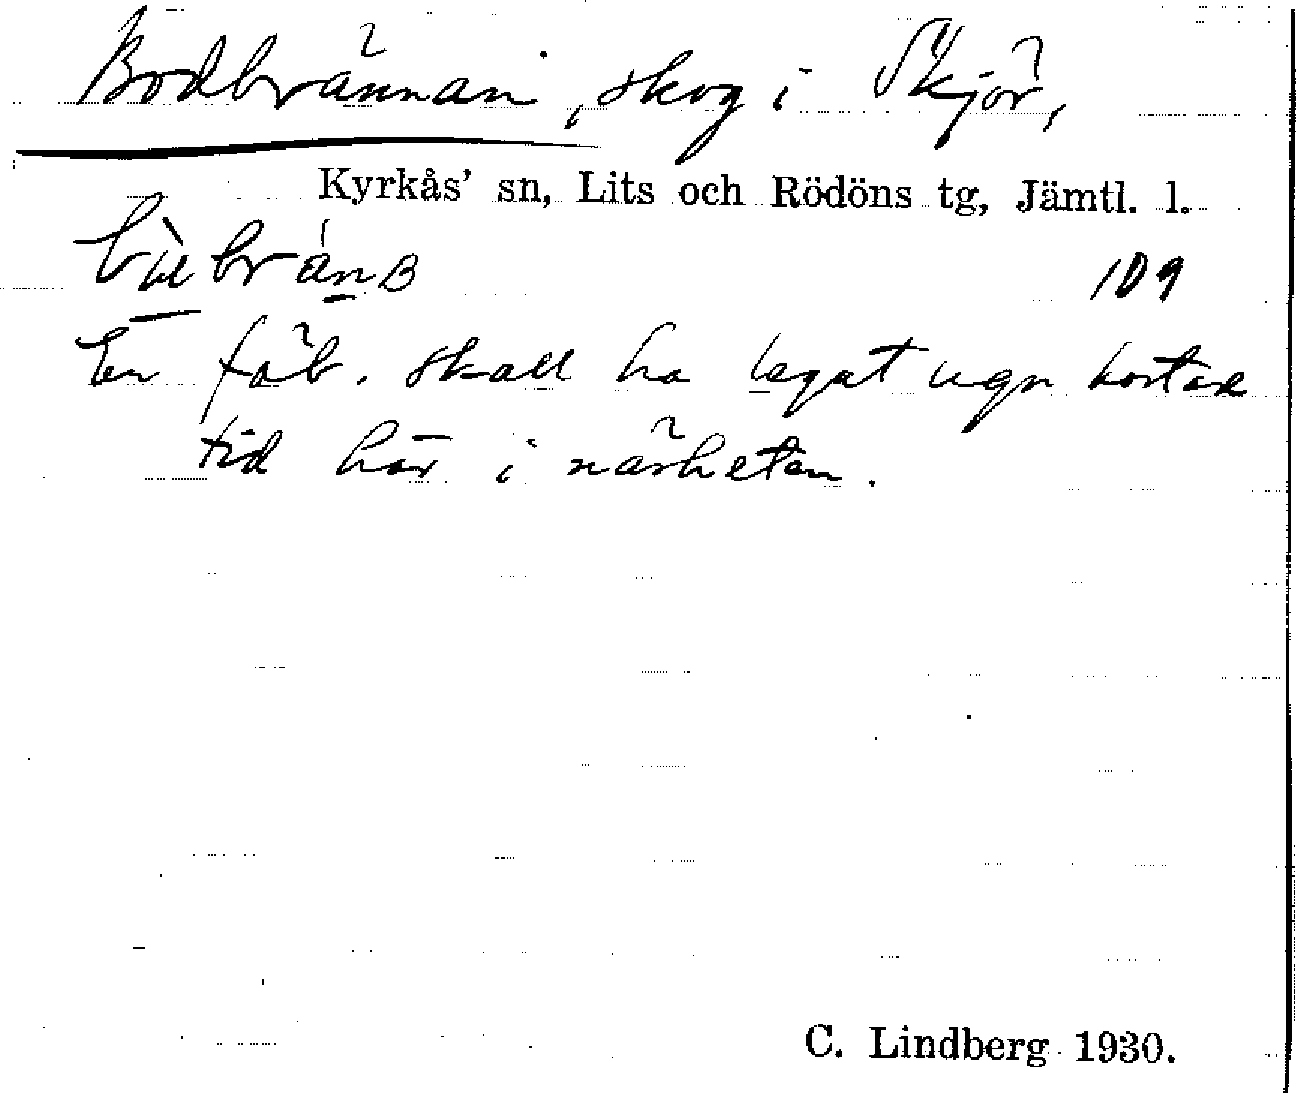 Bodbrännan, skog i Skjör,
Kyrkås' sn, Lits och Rödöns tg, Jämtl. l.
109
En fäb. skall ha legat ugn kortare
tid här i närheten.
C. Lindberg 1930.